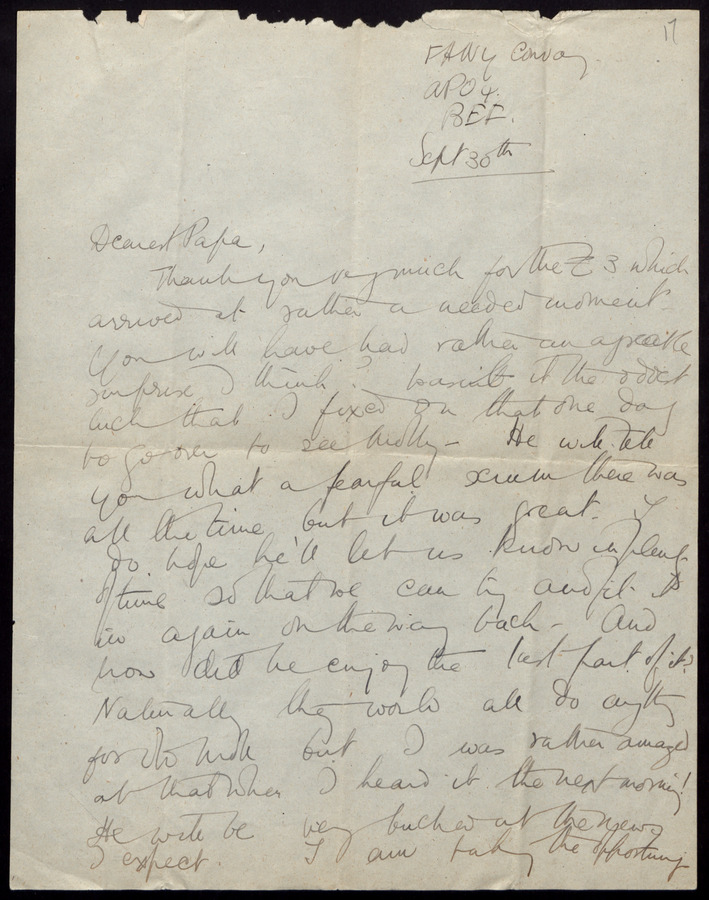 17
FANY Convoy
APO 4.
BEF.
Sept 30th
Dearest Papa,
Thank you very much for the £3 which
arrived at rather a needed moment.
You will have had rather an agreeable
surprise I think? wasn't it the oddest
luck that I fixed on that one day
to go over to see - He will tell
you what a fearful scrum there was
all the time but it was great. I
do hope he'll let us know in plenty
of time so that we can try and fit it
in again on the way back - And
how did he enjoy the last part of it?
Naturally they would all do anything
for but I was rather amazed
at that when I heard it the next morning!
He will be very bucked at the news
I expect. I am taking the opportunity